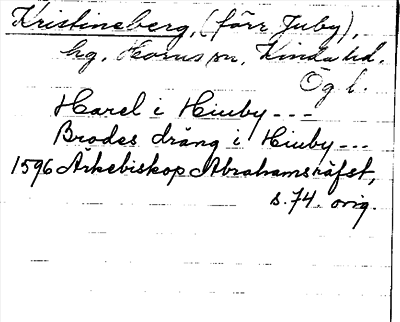 Kristineberg, (förr Juby),
hg. Horns sn, Kinda hd.
Ög l.
Harel i Hiuby ---
Brodes dräng i Hiuby ---
1596 Ärkebiskop Abrahams räfst,
s. 74. orig.